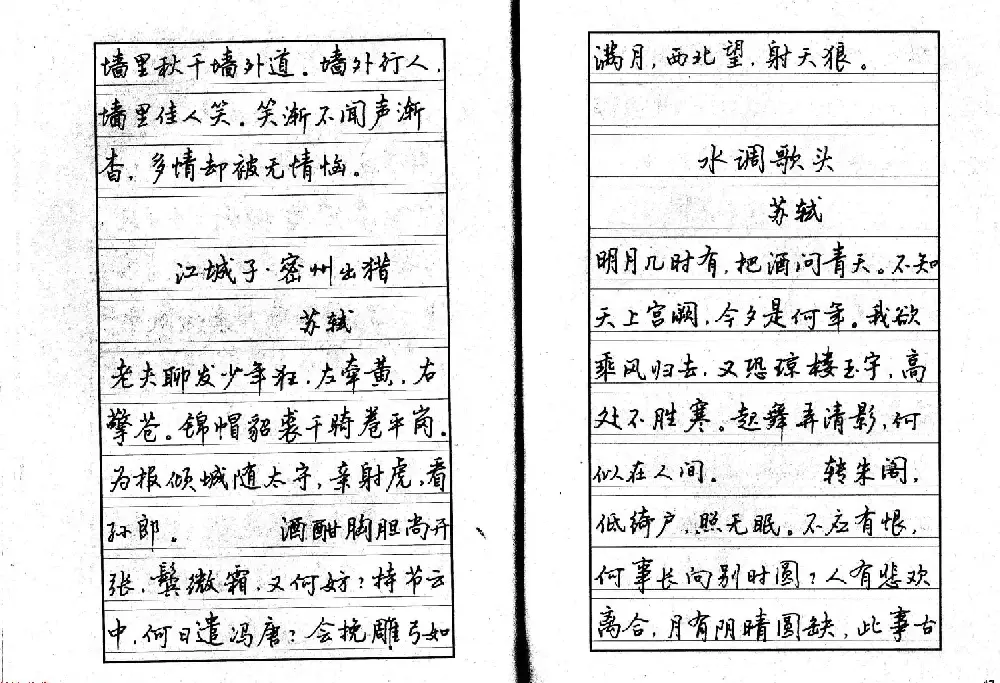 墙里秋千墙外道。墙外行人，
墙里佳人笑。笑渐不闻声渐
杳，多情却被无情恼。
江城子·密州出猎
苏轼
老夫聊发少年狂，左牵黄，右
擎苍。锦帽貂裘千骑卷平岗。
为报倾城随太守，亲射虎，看
孙郎。 酒酣胸胆尚开
张，鬓微霜，又何妨？持节云
中，何日遣冯唐？会挽雕弓如
满月，西北望，射天狼。
水调歌头
苏轼
明月几时有，把酒问青天。不知
天上宫阙，今夕是何年。我欲
乘风归去，又恐琼楼玉宇，高
处不胜寒。起舞弄清影，何
似在人间。 转朱阁，
低绮户，照无眠。不应有恨，
何事长向别时圆？人有悲欢
离合，月有阴晴圆缺，此事古